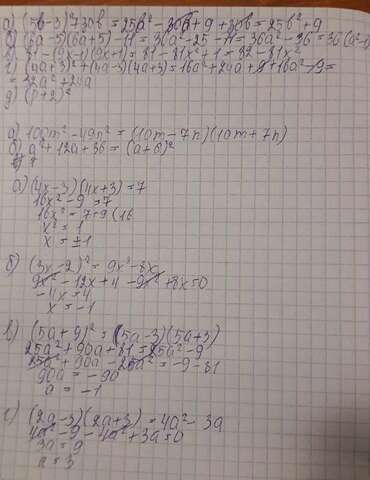 а) (5b-3)²+30b = 25b² - 30b + 9 + 30b = 25b² + 9
б) (6a-5)(6a+5) - 11 = 36a² - 25 - 11 = 36a² - 36 = 36(a²-1)
81 - (9x-1)(9x+1) = 81 - 81x² + 1 = 82 - 81x²
г) (4a+3)² + (4a-3)(4a+3) = 16a² + 24a + 9 + 16a² - 9 =
= 32a² + 24a
д) (p+2)²
а) 100m² - 49n² = (10m - 7n)(10m + 7n)
б) a² + 12a + 36 = (a+6)²
а) (4x-3)(4x+3) = 7
16x² - 9 = 7
16x² = 7+9 (16
x² = 1
x = ±1
б) (3x-2)² = 9x² - 8x
9x² - 12x + 4 - 9x² + 8x = 0
-4x = 4
x = -1
в) (5a+9)² = (5a-3)(5a+3)
25a² + 90a + 81 = 25a² - 9
25a² + 90a - 25a² = -9 - 81
90a = -90
a = -1
г) (2a-3)(2a+3) = 4a² - 3a
4a² - 9 - 4a² + 3a = 0
3a = 9
a = 3